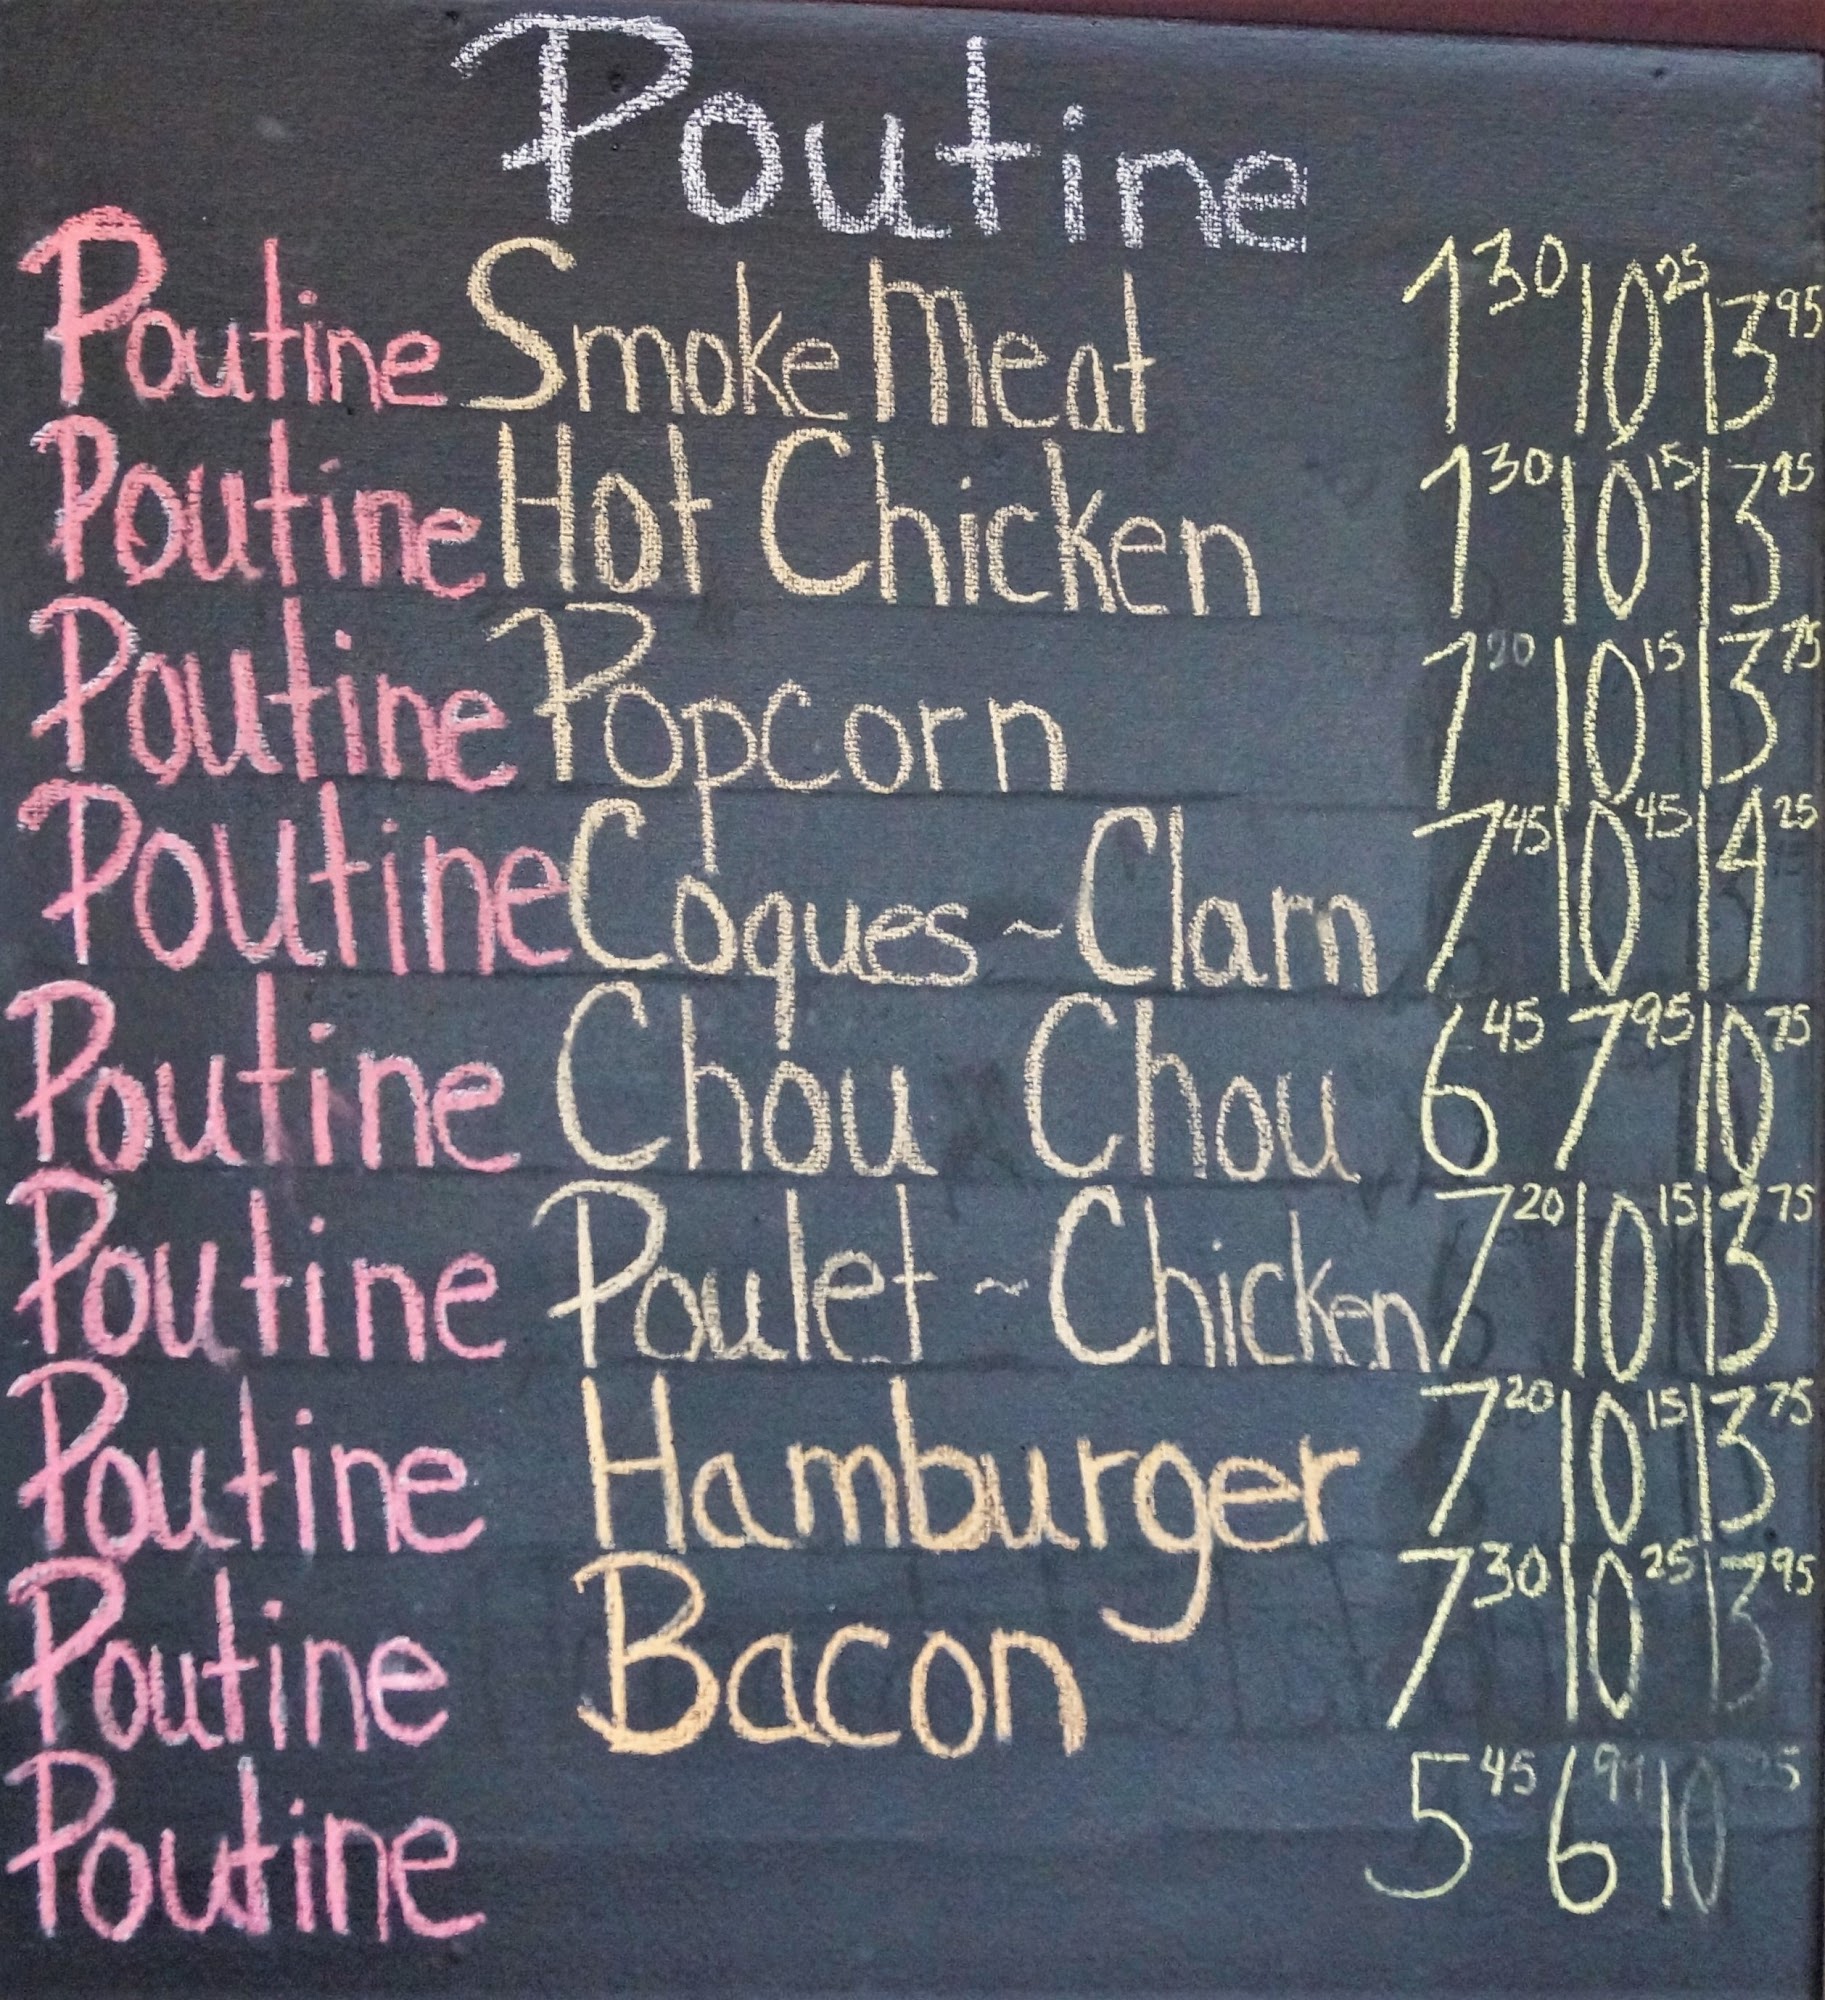 Poutine
Poutine Smoke Meat 7 30 10 25 13 95
Poutine Hot Chicken 7 30 10 15 13 75
Poutine Popcorn 7 20 10 15 13 75
Poutine Coques ~ Clam 7 45 10 45 14 25
Poutine Chou Chou 6 45 7 95 10 75
Poutine Poulet ~ Chicken 7 20 10 15 13 75
Poutine Hamburger 7 20 10 15 13 75
Poutine Bacon 7 30 10 25 13 95
Poutine 5 45 6 10